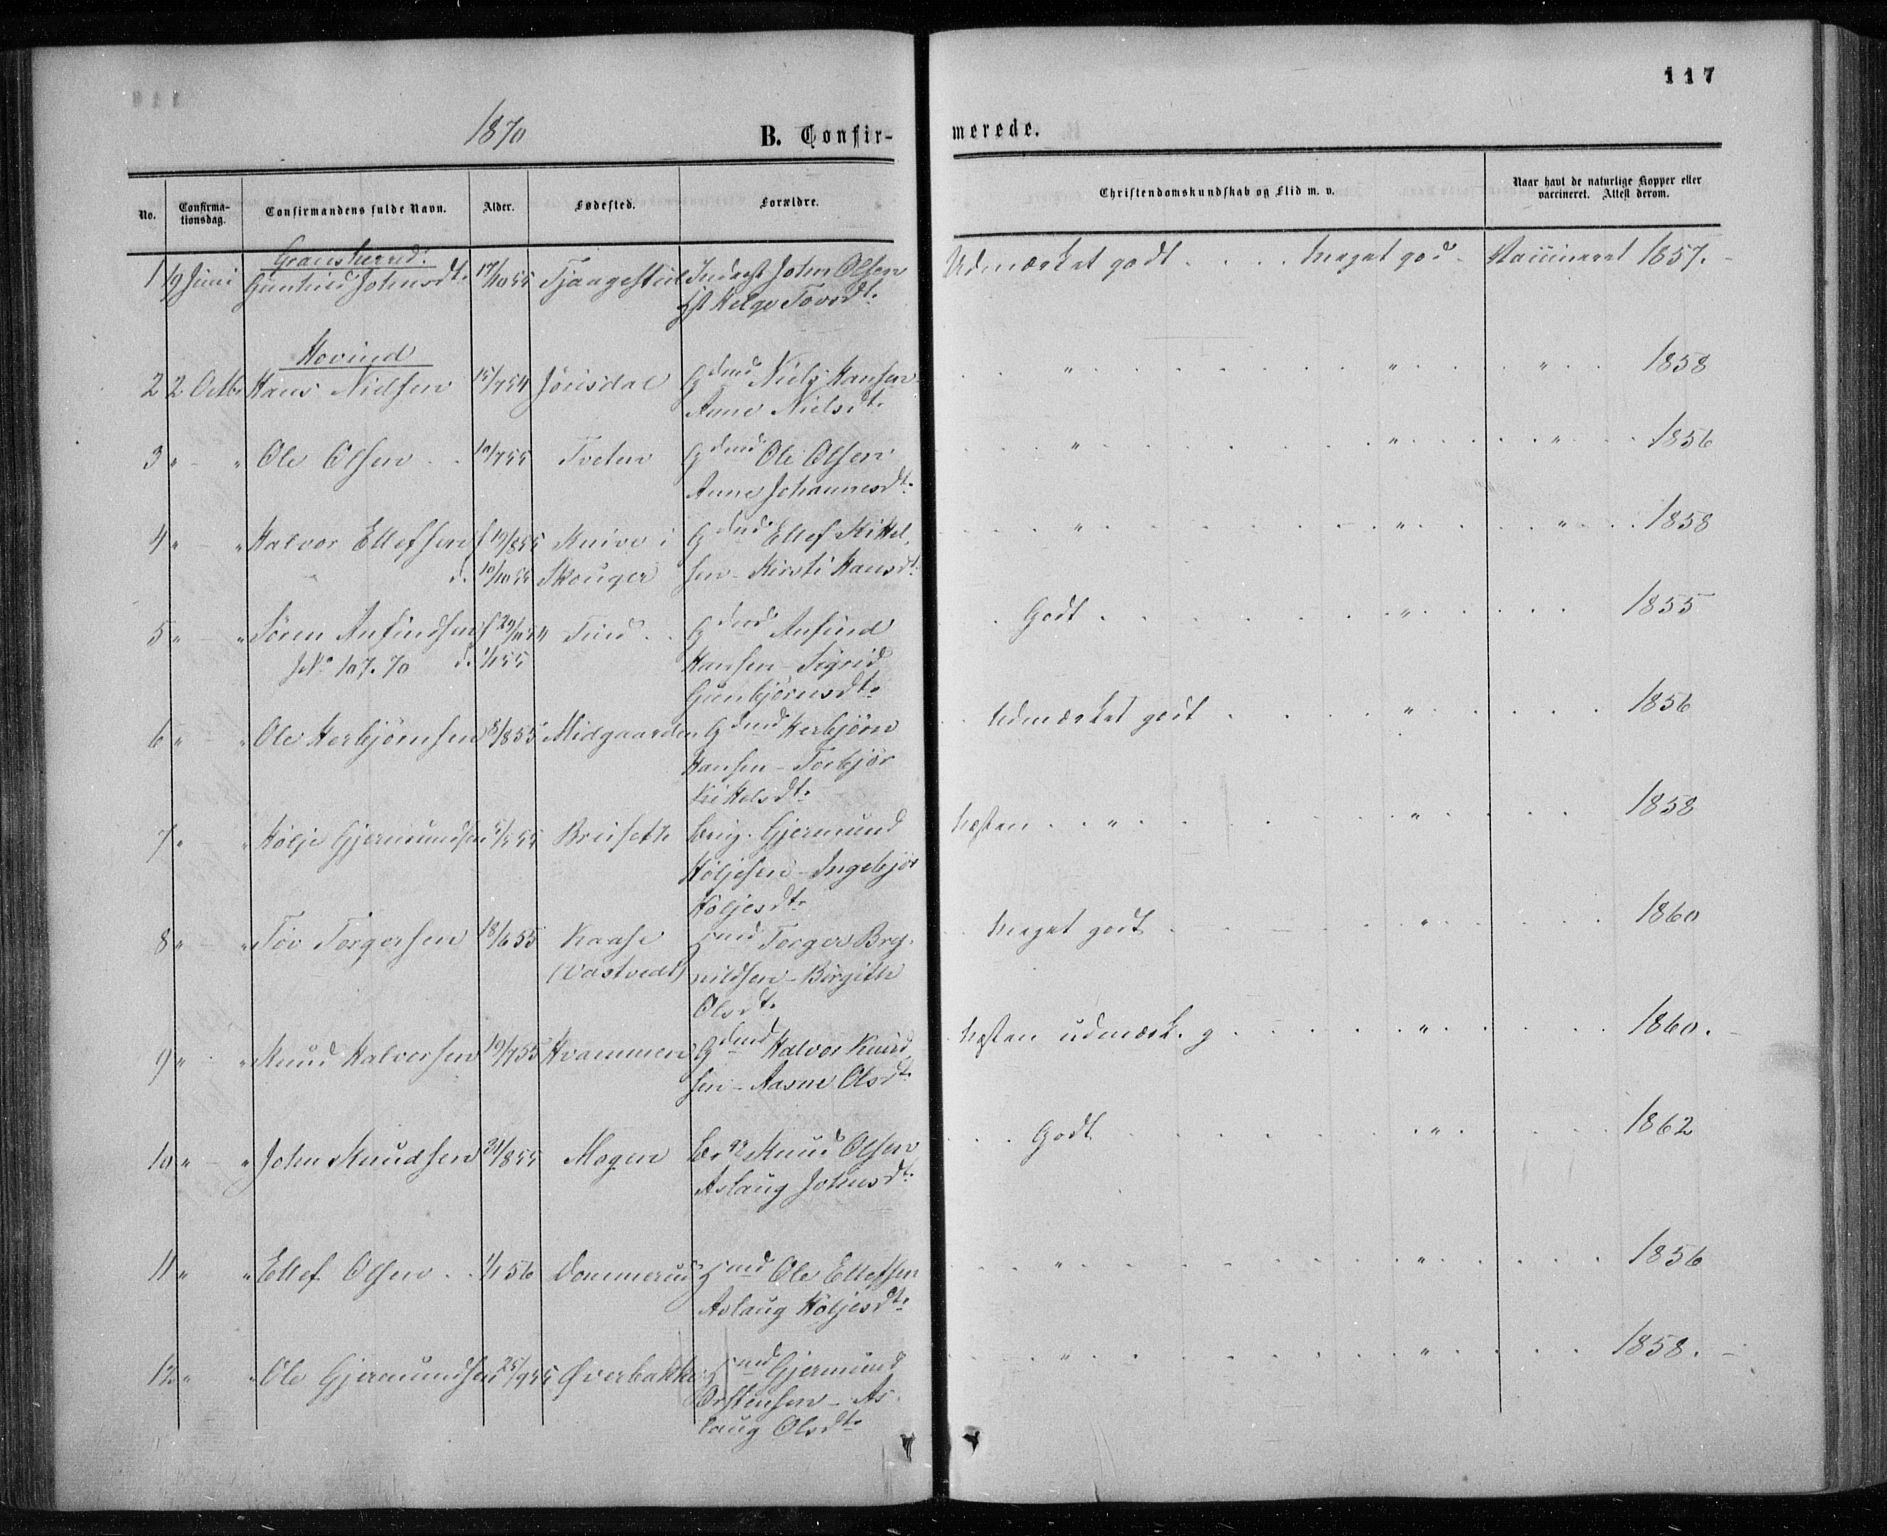 117
1870
B. Confir-
merede.
No.
Confirma-
tionsdag.
Confirmandens fulde Navn.
Alder.
Fødested.
Forældre.
Christendomskundskab og Flid m. v.
Naar havt de naturlige Kopper eller
vaccineret. Attest derom.
Gransherred:
1 19 Juni Gunhild Johnsdt. 17/10 55 Inderst John Olsen
Helge Tovsdt.
Udmærket godt . . . . Meget god. Vaccineret 1857.
Hovind
2 2 Octbr Hans Nielsen 15/7 54 Jønsdal Gdmd Niels Hansen
Anne Nielsdt.
" " " 1858
3 " " Ole Olsen . . 10/7 55 Tveten Gdmd Ole Olsen
Anne Johannesdt.
" " " 1856
4 " " Halvor Ellefsen f 19/8 55 i Gdmd Ellef Kittel
d. 10/10 55 Skouger sen - Kirsti Hansdt.
" " " 1858
5 " " Søren Anfindsen f 29/11 54 Tind . . Gdmd Anfind
No 107. 70 d. 1/1 55 Hansen - Sigrid
Gunbjørnsdt.
Godt . . . " . . 1855
6 " " Ole Herbjørnsen 8/8 55 Midgaarden Gdmd Herbjørn
Hansen - Torbjør
Kittelsdt.
Udmærket godt . . . " . . 1856
7 " " Hølje Gjermundsen Bruseth Gjermund
Høljesen - Ingebjør
Høljesdt.
Næsten . . " . . " . . 1858
8 " " Tov Torgersen 18/6 55 Kaase Hmd Torger Bry-
(Vastvedt) nildsen - Birgith
Olsdt.
Meget godt . . " . . 1860
9 " " Knud Halvorsen 19/7 55 Hvammen Gdmd Halvor Knud
sen - Aasne Olsdt.
Næsten udmærk. g . . " . . 1860.
10 " " John Knudsen 21/8 55 Mogen Knud Olsen
Aslaug Johnsdt.
Godt . . " . . 1862
11 " " Ellef Olsen . . 1/1 56 Dommerud Hmd Ole Ellefsen
Aslaug Høljesdt.
" " 1856
12 " " Ole Gjermundsen 25/9 55 Øverbakke Hmd Gjermund
Orstensen - As-
laug Olsdt.
" " 1858.